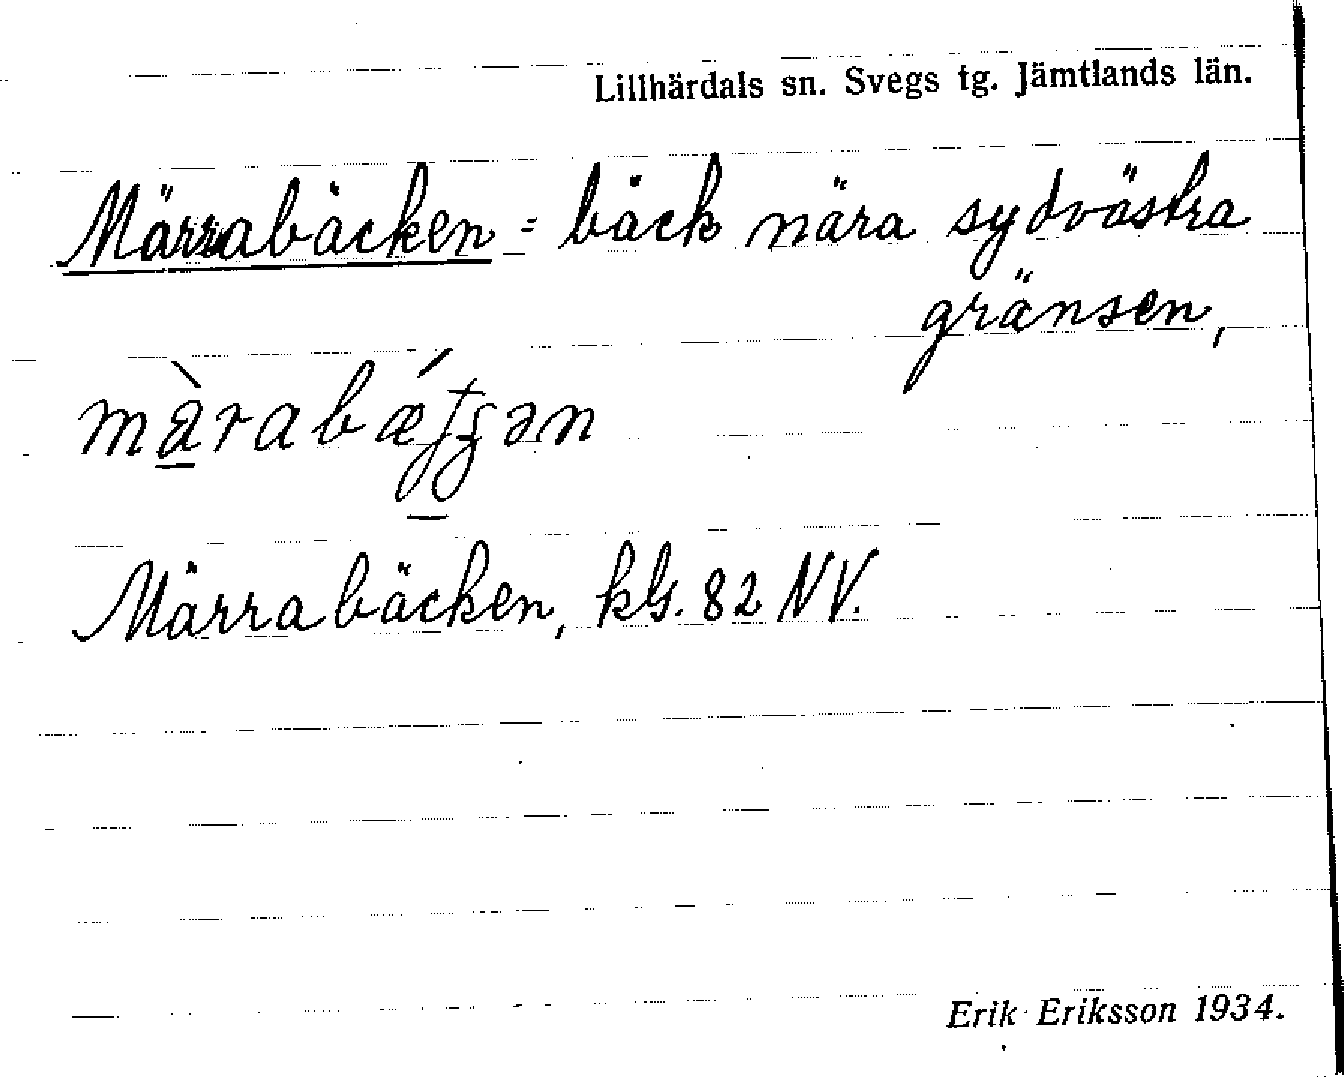 Lillhärdals sn. Svegs tg. Jämtlands län.
Märrabäcken = bäck nära sydvästra
gränsen,
Märrabäcken, kbl. 82 NV.
Erik Eriksson 1934.